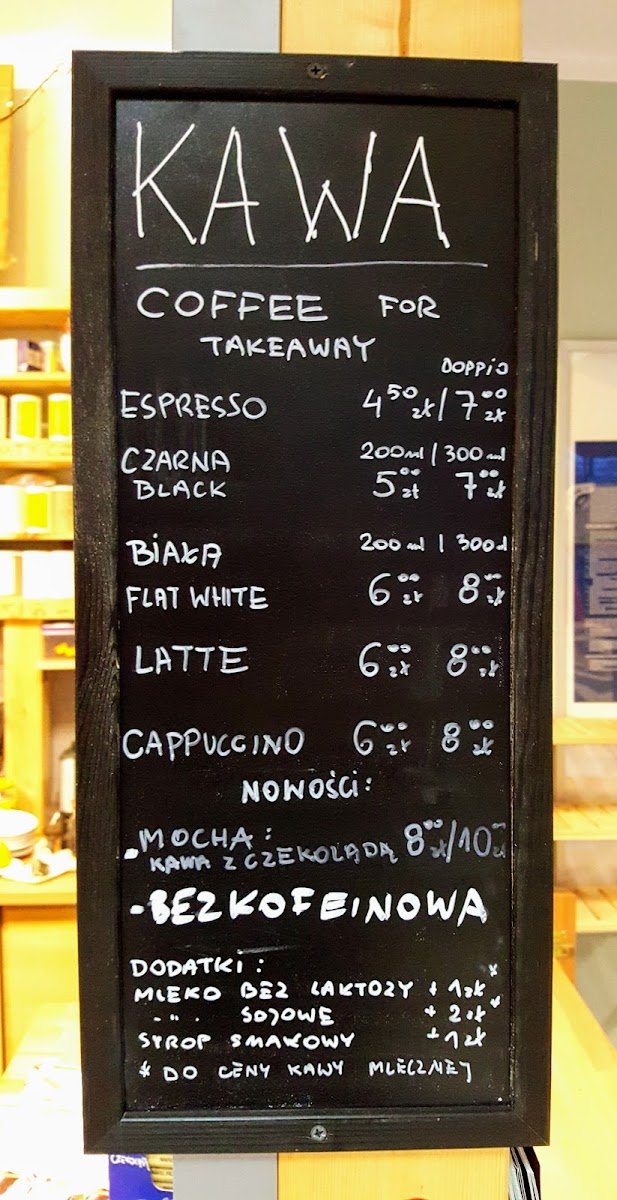 KAWA
COFFEE FOR
TAKEAWAY
DOPPIO
ESPRESSO 4 50 zł / 7 00 zł
CZARNA 200 ml | 300 ml
BLACK 5 00 zł 7 00 zł
BIAŁA 200 ml | 300 ml
FLAT WHITE 6 00 zł 8 00 zł
LATTE 6 00 zł 8 00 zł
CAPPUCCINO 6 00 zł 8 00 zł
NOWOŚCI:
- MOCHA: 8 00 zł / 10 00 zł
KAWA Z CZEKOLADĄ
- BEZKOFEINOWA
DODATKI:
MLEKO BEZ LAKTOZY + 1 zł *
- " - SOJOWE + 2 zł *
SYROP SMAKOWY + 1 zł
* DO CENY KAWY MLECZNEJ